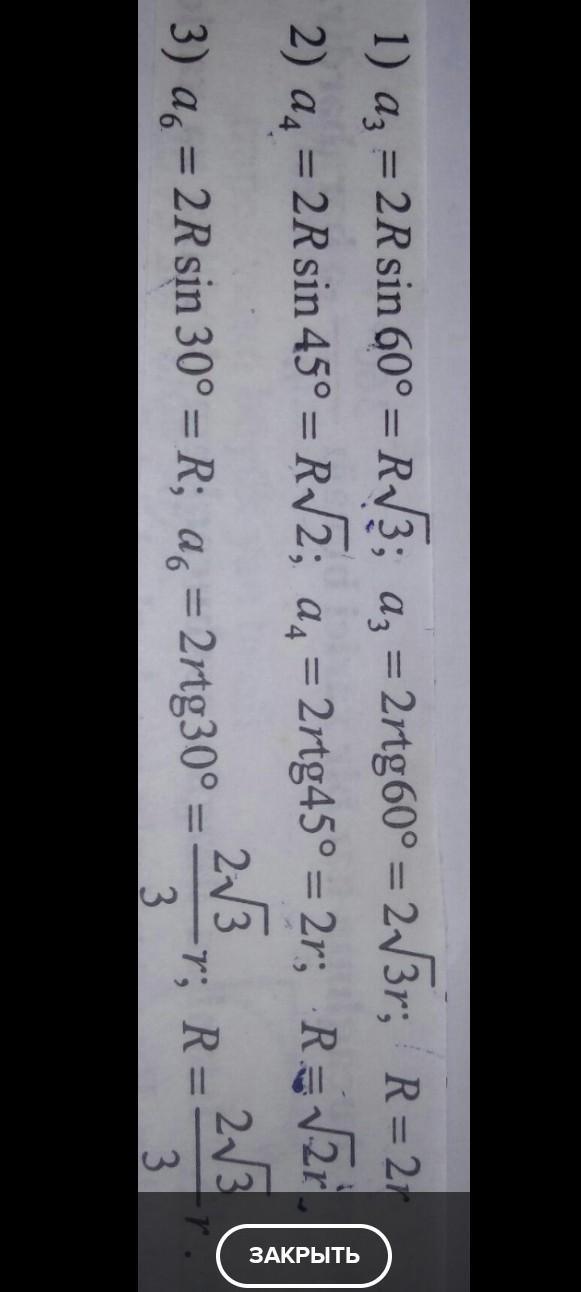 1) a₃ = 2R sin 60° = R√3; a₃ = 2rtg60° = 2√3r; R = 2r
2) a₄ = 2R sin 45° = R√2; a₄ = 2rtg45° = 2r; R = √2r
3) a₆ = 2R sin 30° = R; a₆ = 2rtg30° = 2√3/3 r; R = 2√3/3 r.
ЗАКРЫТЬ